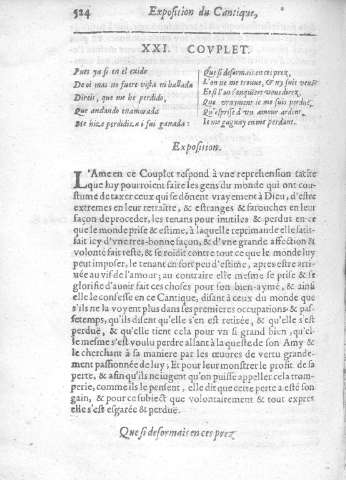 524 Exposition du Cantique,
XXI. COVPLET.
Pues ya si en el exido
De oi mas no fuere vista ni hallada
Direis, que me he perdido,
Que andando enamorada
Me hize perdidiza i fui ganada:
Que si desormais en ces prez
L'on ne me trouue, & ny suis veuë
Et si l'on s'enquiert vous direz,
Que vrayment ie me suis perduë,
Qu'esprise d'vn amour ardent
Ie me gaignay en me perdant.
Exposition.
L'Ame en ce Couplet respond à vne reprehension tacite
que luy pourroient faire les gens du monde qui ont cou-
stume de taxer ceux qui se dõnent vrayement à Dieu, d'estre
extremes en leur retraitte, & estranges & farouches en leur
façon de proceder, les tenans pour inutiles & perdus en ce
que le monde prise & estime, à laquelle reprimande elle satis-
fait icy d'vne tres-bonne façon, & d'vne grande affection &
volonté fait teste, & se roidit contre tout ce que le monde luy
peut imposer, le tenant en fort peu d'estime, apres estre arri-
uée au vif de l'amour; au contraire elle mesme se prise & se
glorifie d'auoir fait ces choses pour son bien-aymé, & ainsi
elle le confesse en ce Cantique, disant à ceux du monde que
s'ils ne la voyent plus dans ses premieres occupations & pas-
setemps, qu'ils disent qu'elle s'en est retirée, & qu'elle s'est
perduë, & qu'elle tient cela pour vn si grand bien, qu'el-
le mesme s'est voulu perdre allant à la queste de son Amy &
le cherchant à sa maniere par les œuures de vertu grande-
ment passionnée de luy, Et pour leur monstrer le profit de sa
perte, & afin qu'ils ne iugent qu'on puisse appeller cela trom-
perie, comme ils le pensent, elle dit que cette perte a esté son
gain, & pour ce subiect que volontairement & tout expres
elle s'est esgarée & perduë.
Que si desormais en ces prez